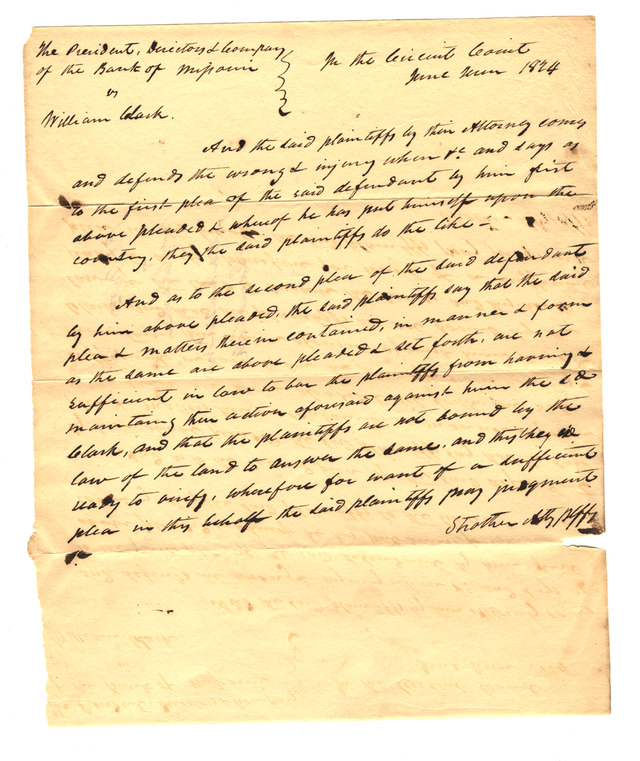 The President, Directors & Company
of the Bank of Missouri
vs
William Clark.
In the Circuit Court
June Term 1824
And the said plaintiffs by their Attorney comes
and defends the wrong & injury when &c and says as
to the first plea of the said defendant by him first
above pleaded & whereof he has put himself upon the
country, they the said plaintiffs do the like –
And as to the second plea of the said defendant
by him above pleaded, the said plaintiffs say that the said
plea & matters therein contained, in manner & form
as the same are above pleaded & set forth, are not
sufficient in law to bar the plaintiffs from having &
maintaining their action aforesaid against him the sd
Clark, and that the plaintiffs are not bound by the
law of the land to answer the same, and this they are
ready to verify, wherefore for want of a sufficient
plea in this behalf the said plaintiffs pray judgment
Strother Atty Plffs